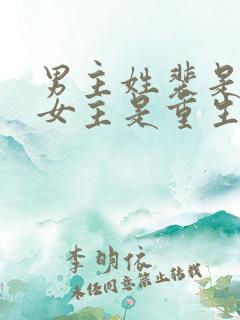 男主姓裴是
女主是重生
李明依
未经同意禁止转载